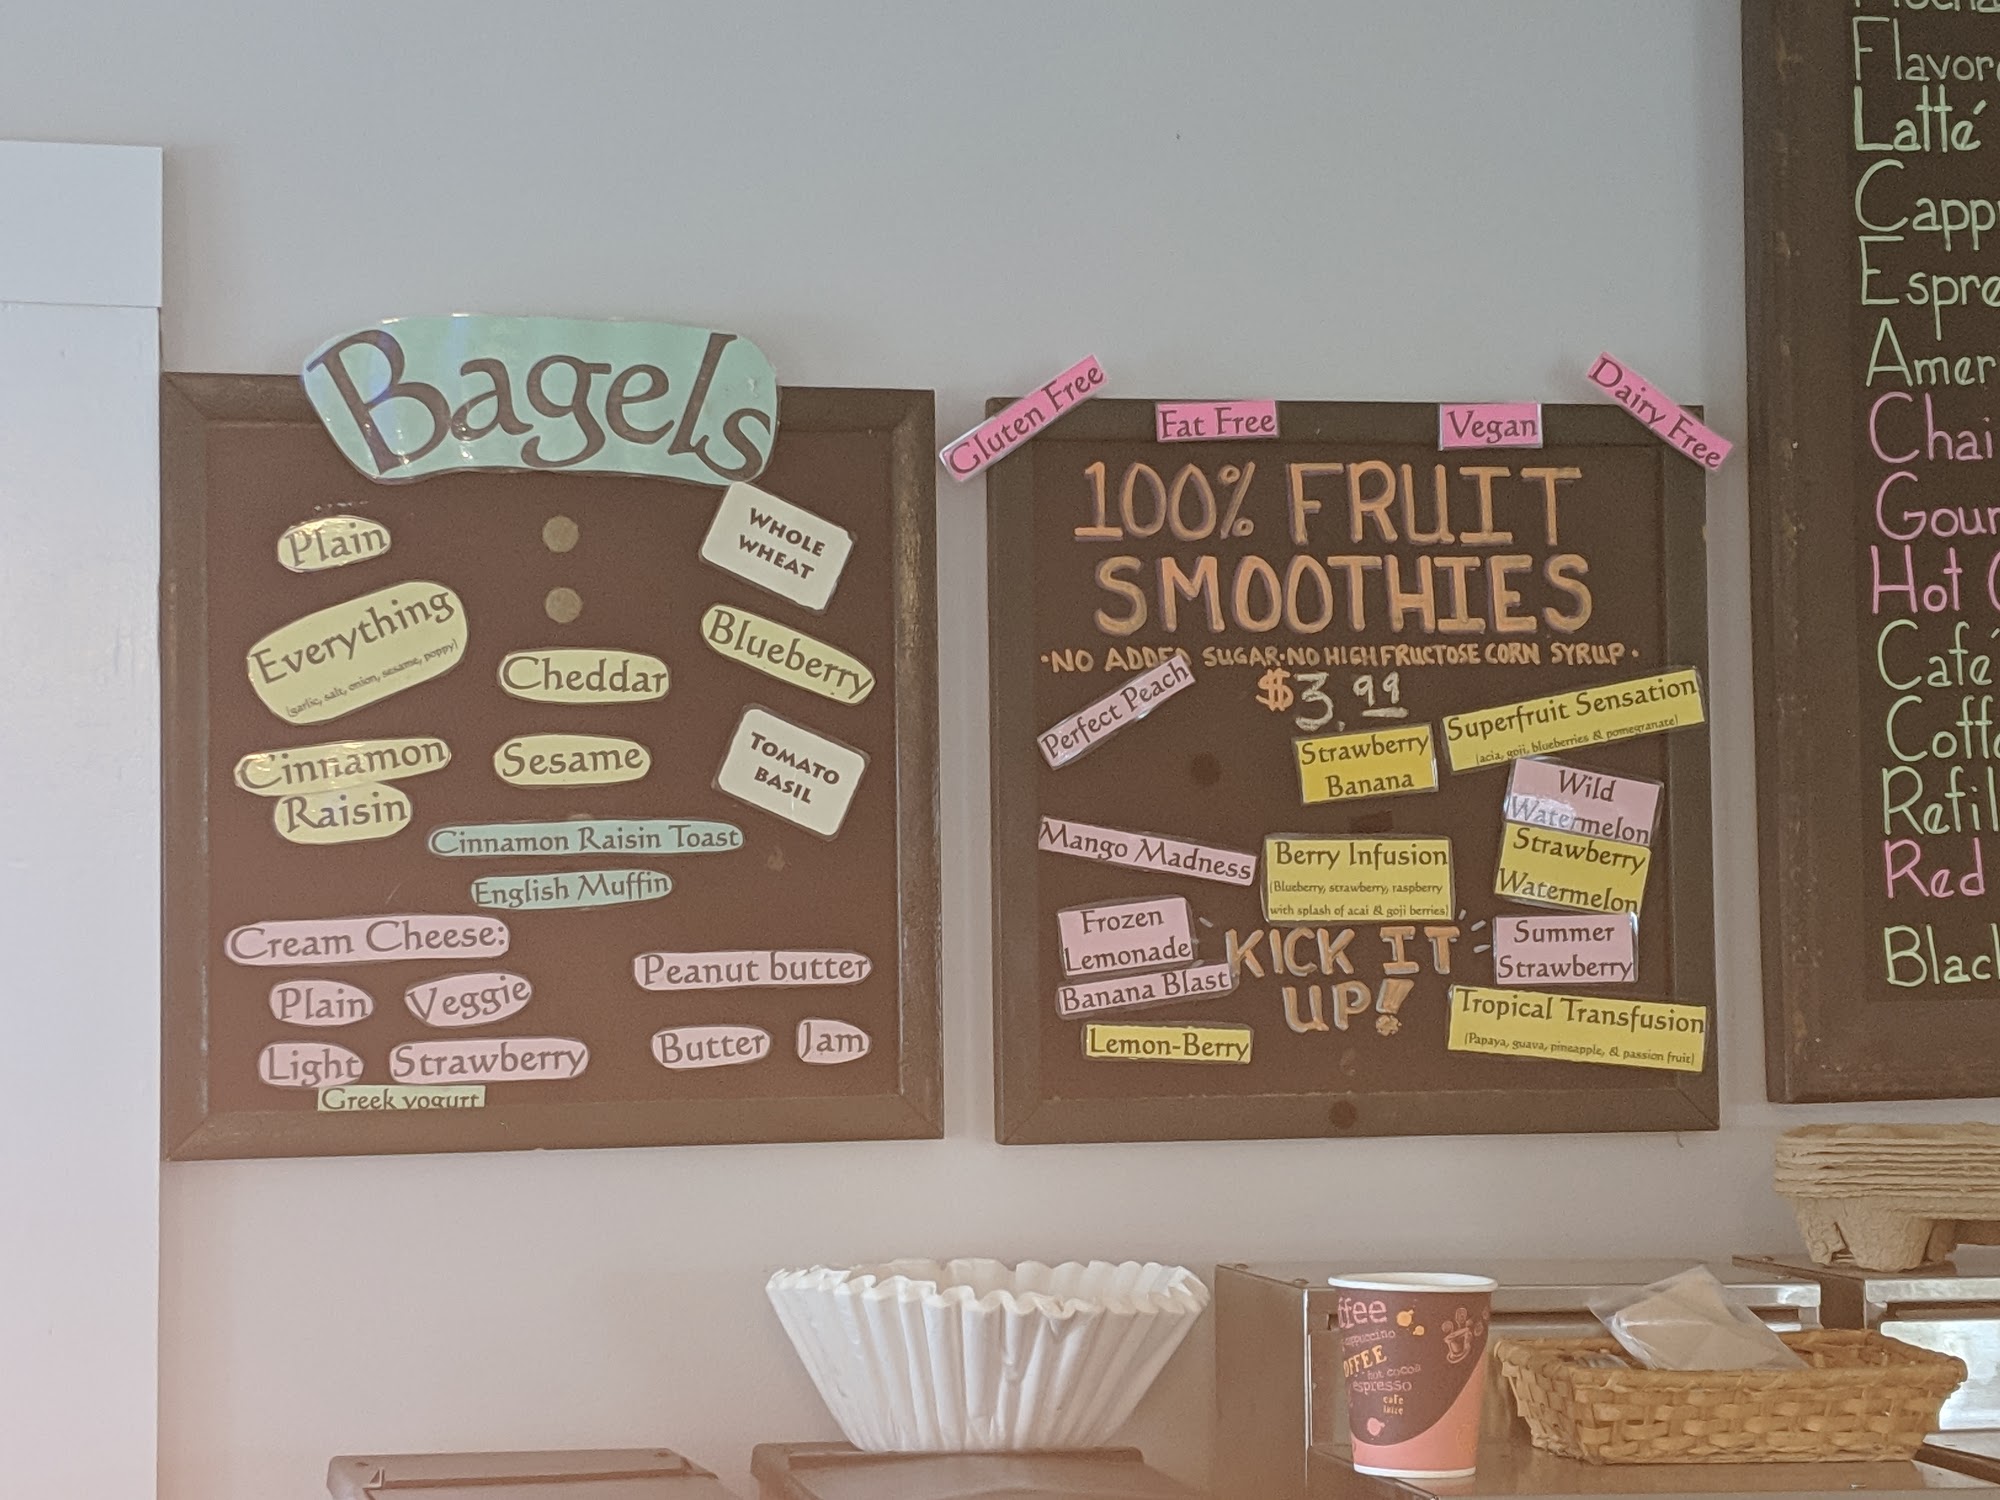 Bagels
Plain
WHOLE
WHEAT
Everything
(garlic, salt, onion, sesame, poppy)
Cheddar
Blueberry
Cinnamon
Raisin
Sesame
TOMATO
BASIL
Cinnamon Raisin Toast
English Muffin
Cream Cheese:
Plain
Veggie
Light
Strawberry
Greek yogurt
Peanut butter
Butter
Jam
Gluten Free
Fat Free
Vegan
Dairy Free
100% FRUIT
SMOOTHIES
·NO ADDED SUGAR·NO HIGH FRUCTOSE CORN SYRUP·
$3.99
Perfect Peach
Strawberry
Banana
Superfruit Sensation
(acia, goji, blueberries & pomegranate)
Wild
Watermelon
Mango Madness
Berry Infusion
(Blueberry, strawberry, raspberry
with splash of acai & goji berries)
Strawberry
Watermelon
Frozen
Lemonade
KICK IT
UP!
Summer
Strawberry
Banana Blast
Lemon-Berry
Tropical Transfusion
(Papaya, guava, pineapple, & passion fruit)
Flavor
Latté
Capp
Espre
Amer
Chai
Gour
Hot
Café
Coff
Refil
Red
Blac
ffee
OFFEE
hot cocoa
espresso
cafe